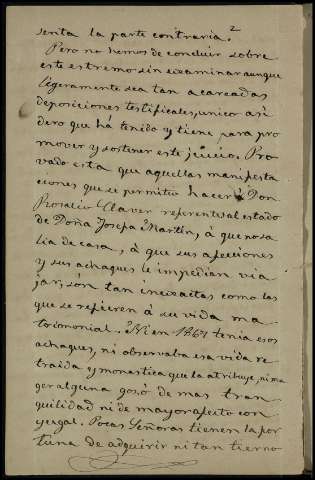 senta la parte contraria? 2
Pero no hemos de concluir sobre
este estremo sin ecsaminar aunque
ligeramente sea tan acareadas
deposiciones testificales, unico asi
dero que há tenido y tiene para pro
mover y sostener este juicio. Pro
vado esta que aquellas manifesta
ciones que se permitió hacer Don
Rosalio Claver referentes al estado
de Doña Josepa Martin, á que no sa
lia de casa, á que sus afecciones
y sus achaques le impedian via
jar, són tan inexactas como las
que se refieren á su vida ma
trimonial. Ni en 1867 tenia esos
achaques, ni observaba esa vida re
traida y monastica que la atribuye, ni mu
ger alguna gozó de mas tran
quilidad ni de mayor afecto con
yugal. Pocas Señoras tienen la for
tuna de adquirir ni tan tierno